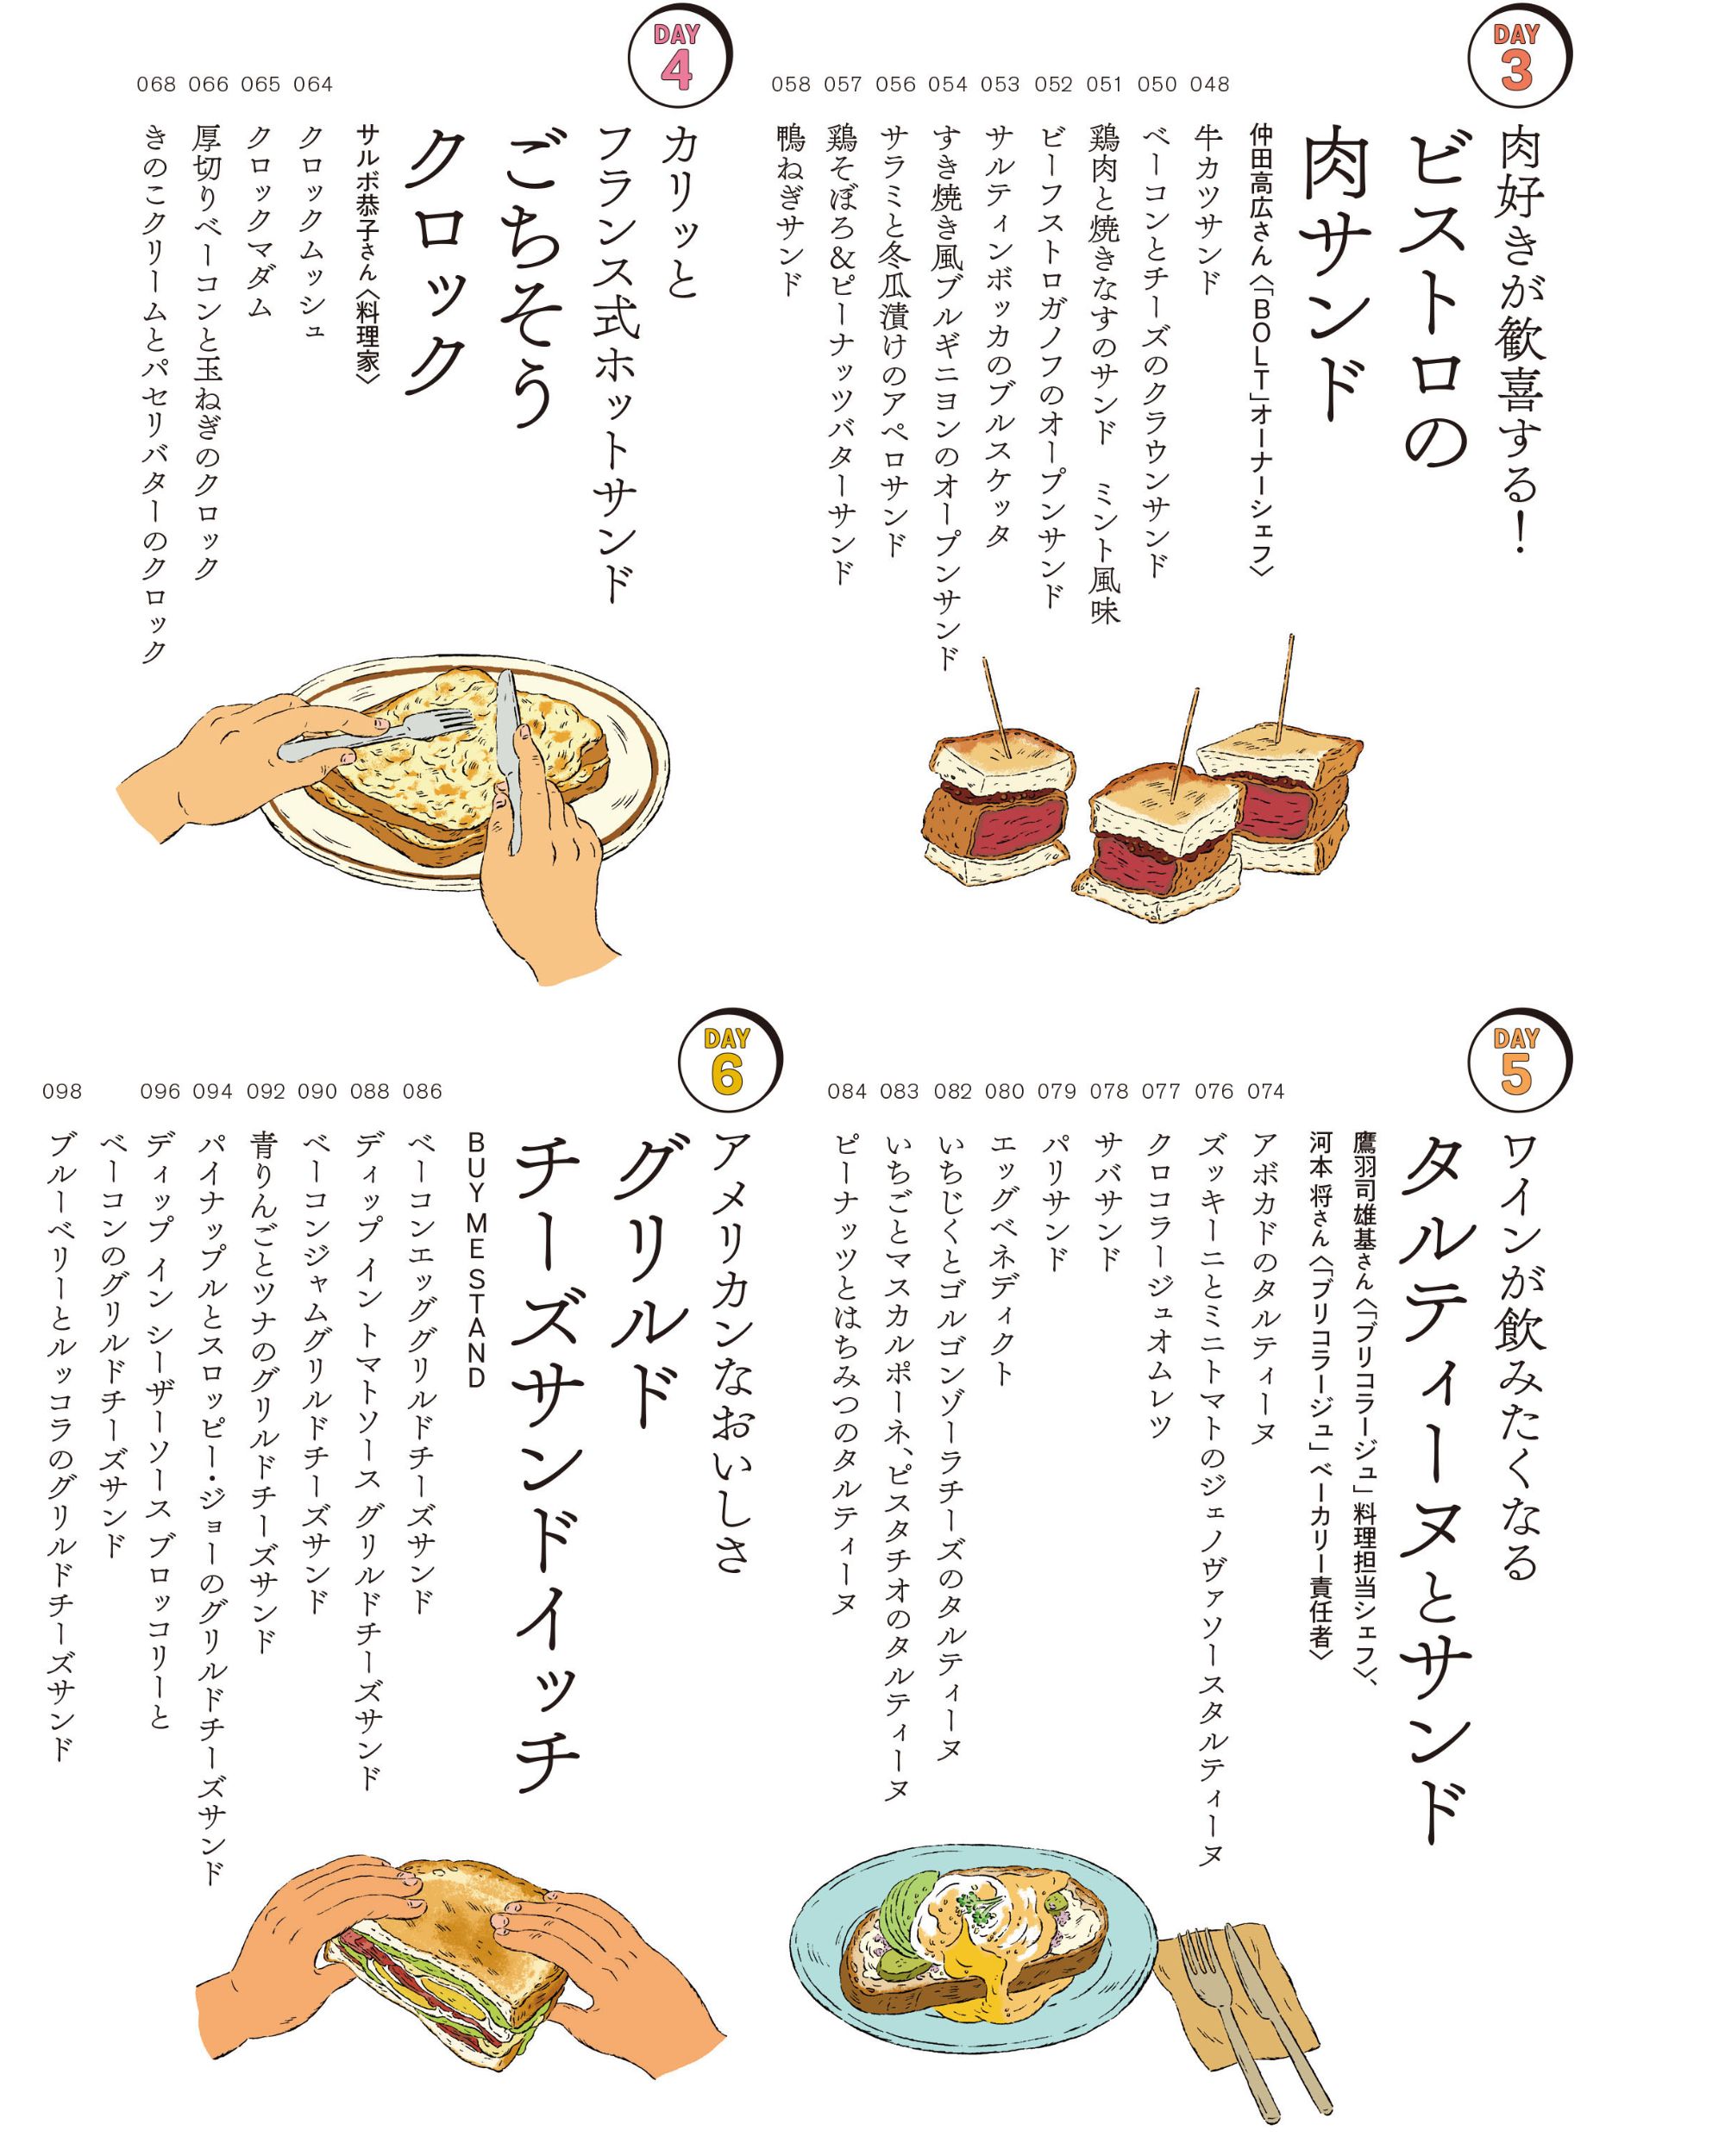 DAY
3
肉好きが歓喜する！
ビストロの
肉サンド
仲田高広さん〈「BOLT」オーナーシェフ〉
048
牛カツサンド
050
ベーコンとチーズのクラウンサンド
051
鶏肉と焼きなすのサンド　ミント風味
052
ビーフストロガノフのオープンサンド
053
サルティンボッカのブルスケッタ
054
すき焼き風ブルギニヨンのオープンサンド
056
サラミと冬瓜漬けのアペロサンド
057
鶏そぼろ＆ピーナッツバターサンド
058
鴨ねぎサンド
DAY
4
カリッと
フランス式ホットサンド
ごちそう
クロック
サルボ恭子さん〈料理家〉
064
クロックムッシュ
065
クロックマダム
066
厚切りベーコンと玉ねぎのクロック
068
きのこクリームとパセリバターのクロック
DAY
5
ワインが飲みたくなる
タルティーヌとサンド
鷹羽司雄基さん〈「ブリコラージュ」料理担当シェフ〉、
河本 将さん〈「ブリコラージュ」ベーカリー責任者〉
074
アボカドのタルティーヌ
076
ズッキーニとミニトマトのジェノヴァソースタルティーヌ
077
クロコラージュオムレツ
078
サバサンド
079
パリサンド
080
エッグベネディクト
082
いちじくとゴルゴンゾーラチーズのタルティーヌ
083
いちごとマスカルポーネ、ピスタチオのタルティーヌ
084
ピーナッツとはちみつのタルティーヌ
DAY
6
アメリカンなおいしさ
グリルド
チーズサンドイッチ
BUY ME STAND
086
ベーコンエッググリルドチーズサンド
088
ディップ イン トマトソース グリルドチーズサンド
090
ベーコンジャムグリルドチーズサンド
092
青りんごとツナのグリルドチーズサンド
094
パイナップルとスロッピー・ジョーのグリルドチーズサンド
096
ディップ イン シーザーソース ブロッコリーと
ベーコンのグリルドチーズサンド
098
ブルーベリーとルッコラのグリルドチーズサンド